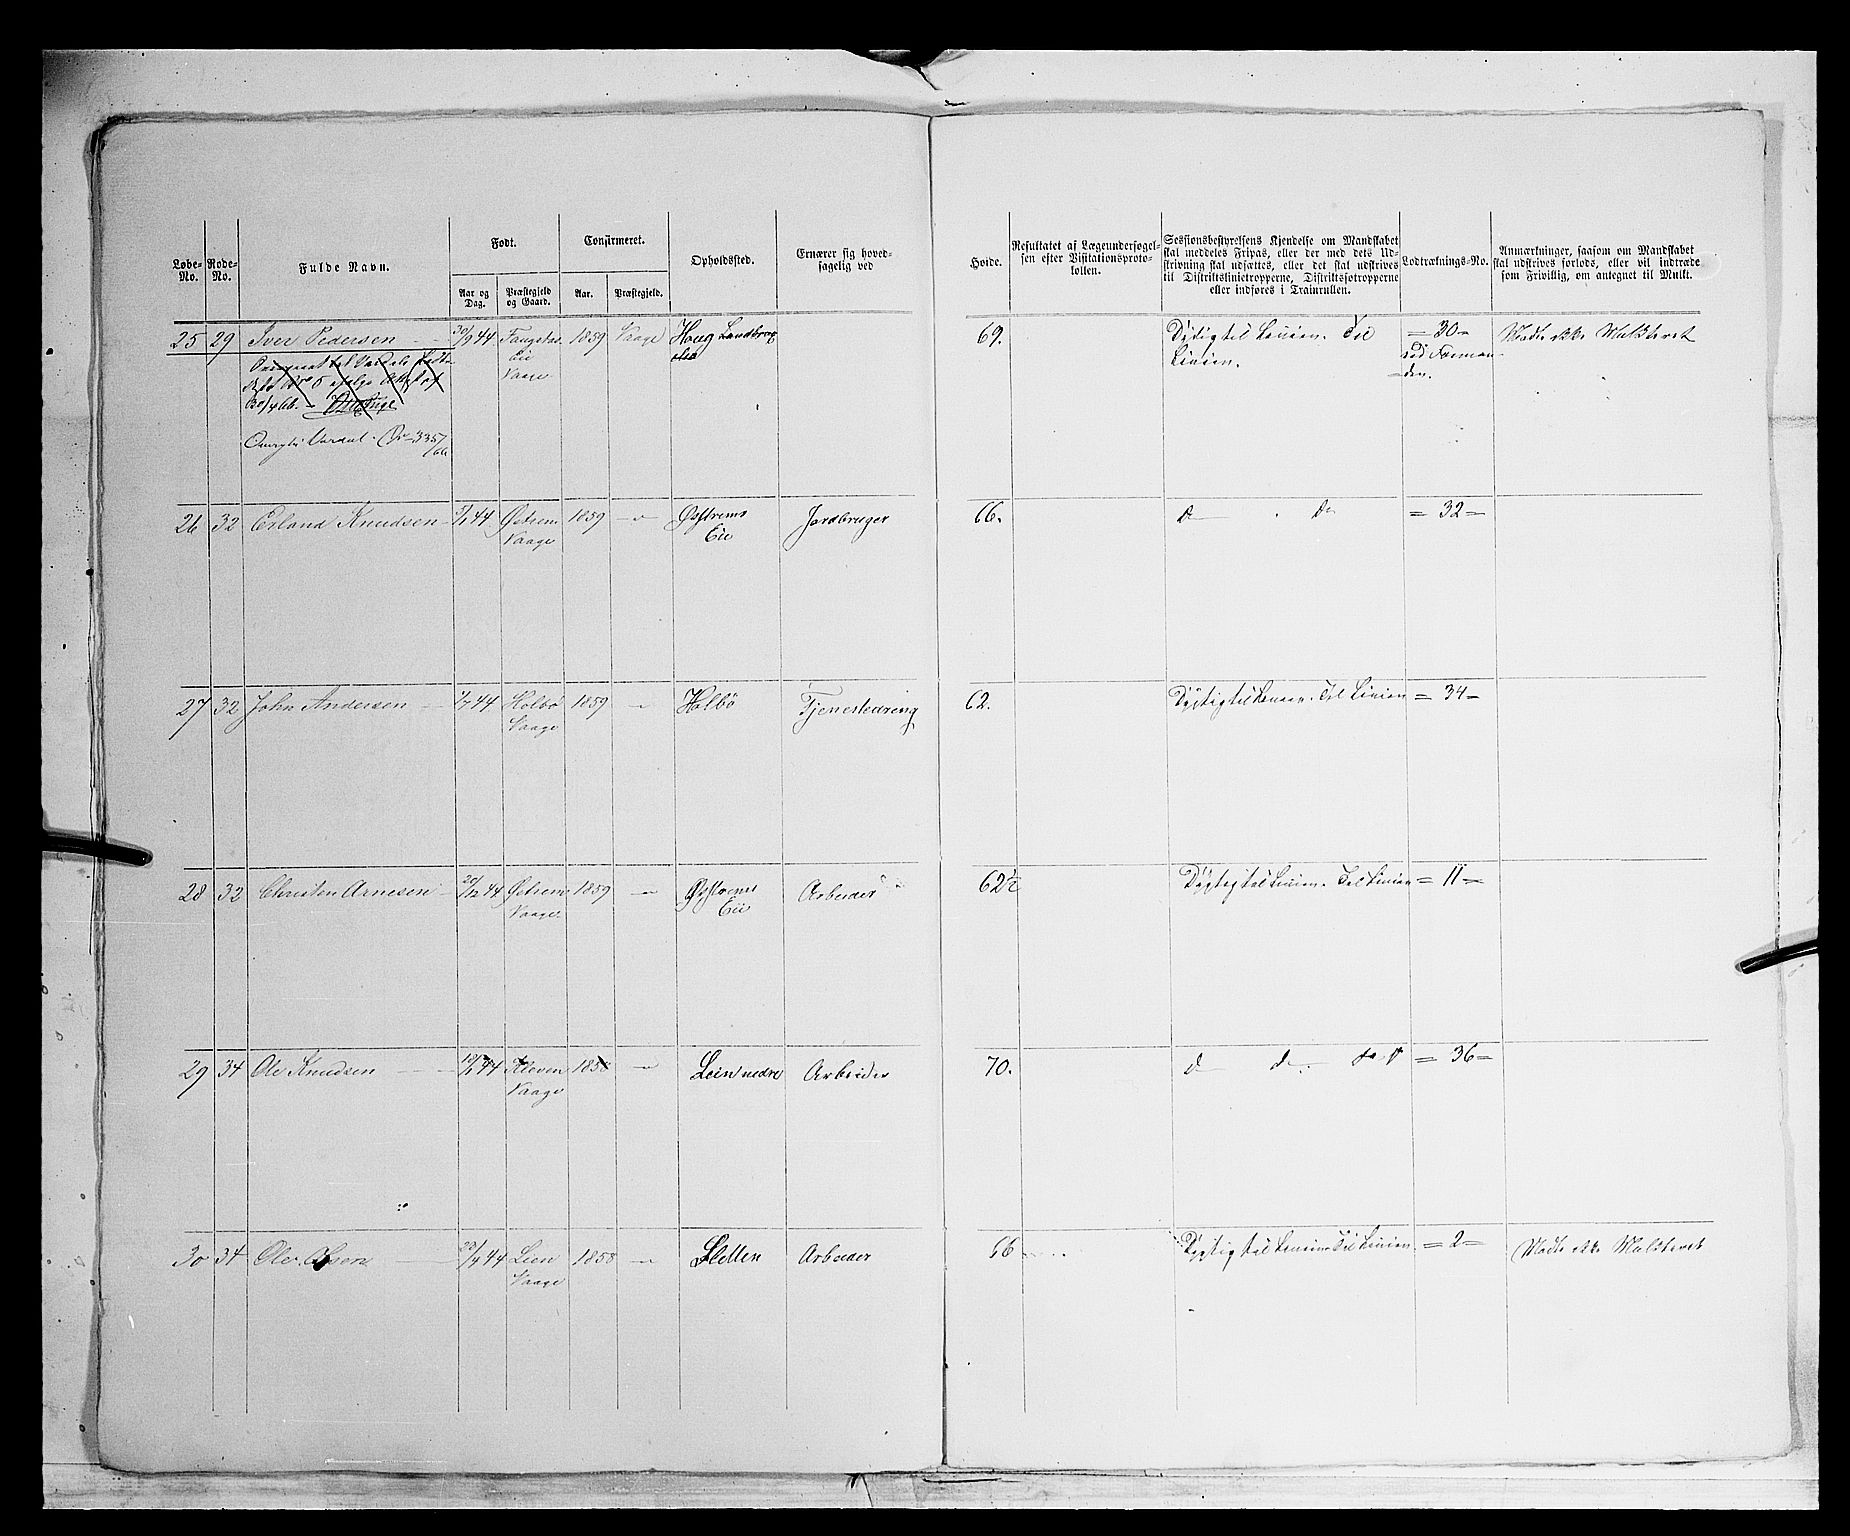 Løbe-No.
Rode-No.
Fulde Navn.
Født.
Aar og Dag.
Præstegjeld og Gaard.
Confirmeret.
Aar.
Præstegjeld.
Opholdssted.
Ernærer sig hoved-
sagelig ved
Høide.
Resultatet af Lægeundersøgel-
sen efter Visitationsproto-
kollen.
Sessionsbestyrelsens Kjendelse om Mandskabet
skal meddeles Fripas, eller der med dets Ud-
skrivning skal udsættes, eller det skal udskrives
til Distriktslinietropperne, Distriktsjotropperne
eller indføres i Trainrullen.
Lodtræknings-No.
Anmærkninger, saasom om Mandskabet
skal udskrives forlods, eller vil indtræde
som Frivillig, om antegnet til Mulkt.
25 29 Iver Pedersen 30/9 44 1859 Vaage Haug Landbrug 69. Dygtig til Linien. Til = 30 = Mødt ikke Mulkteret
Eie Linien. ved Forman-
Vaage den.
30/4 66.
Vardal 335/66
26 32 Erland Knudsen 44 Øxtrem 1859 Øxtrems Jordbruger 66. d do = 32 =
Vaage Eie
27 32 John Andersen 1/7 44 Holbø 1859 Holbø Tjenestedreng 62. Dygtig til Linien. Til Linien = 34 =
Vaage
28 32 Christen Arnesen 30/12 44 Øxtrem 1859 Øxtrems Arbeider 62½ Dygtig til Linien. Til Linien = 11 =
Vaage Eie
29 34 Ole Knudsen 44 Kleven 1858 Lein nedre Arbeider 70. d d do = 36 =
Vaage
30 34 Ole Olsen 23/4 44 Lien 1858 Sletten Arbeider 66 Dygtig til Linien Til Linien = 2 = Mødt ikke Mulkteret
Vaage